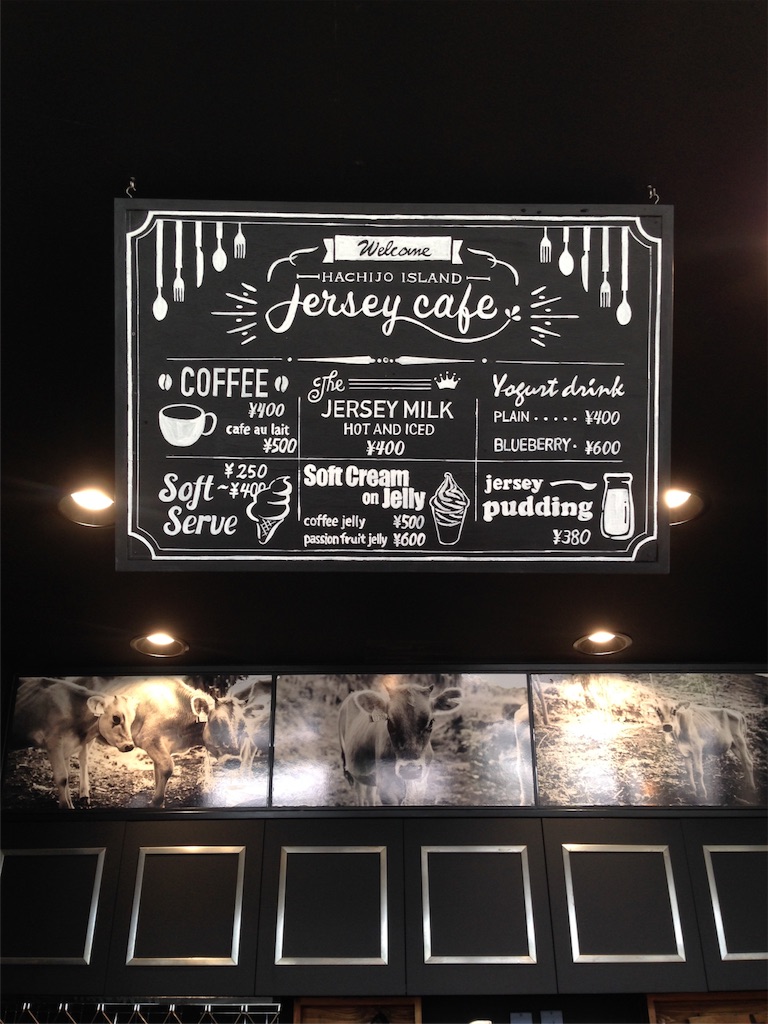 Welcome
HACHIJO ISLAND
Jersey cafe
COFFEE
¥400
cafe au lait
¥500
The
JERSEY MILK
HOT AND ICED
¥400
Yogurt drink
PLAIN ····· ¥400
BLUEBERRY · ¥600
Soft Serve
¥250
~¥400
Soft Cream
on Jelly
coffee jelly ¥500
passion fruit jelly ¥600
jersey
pudding
¥380